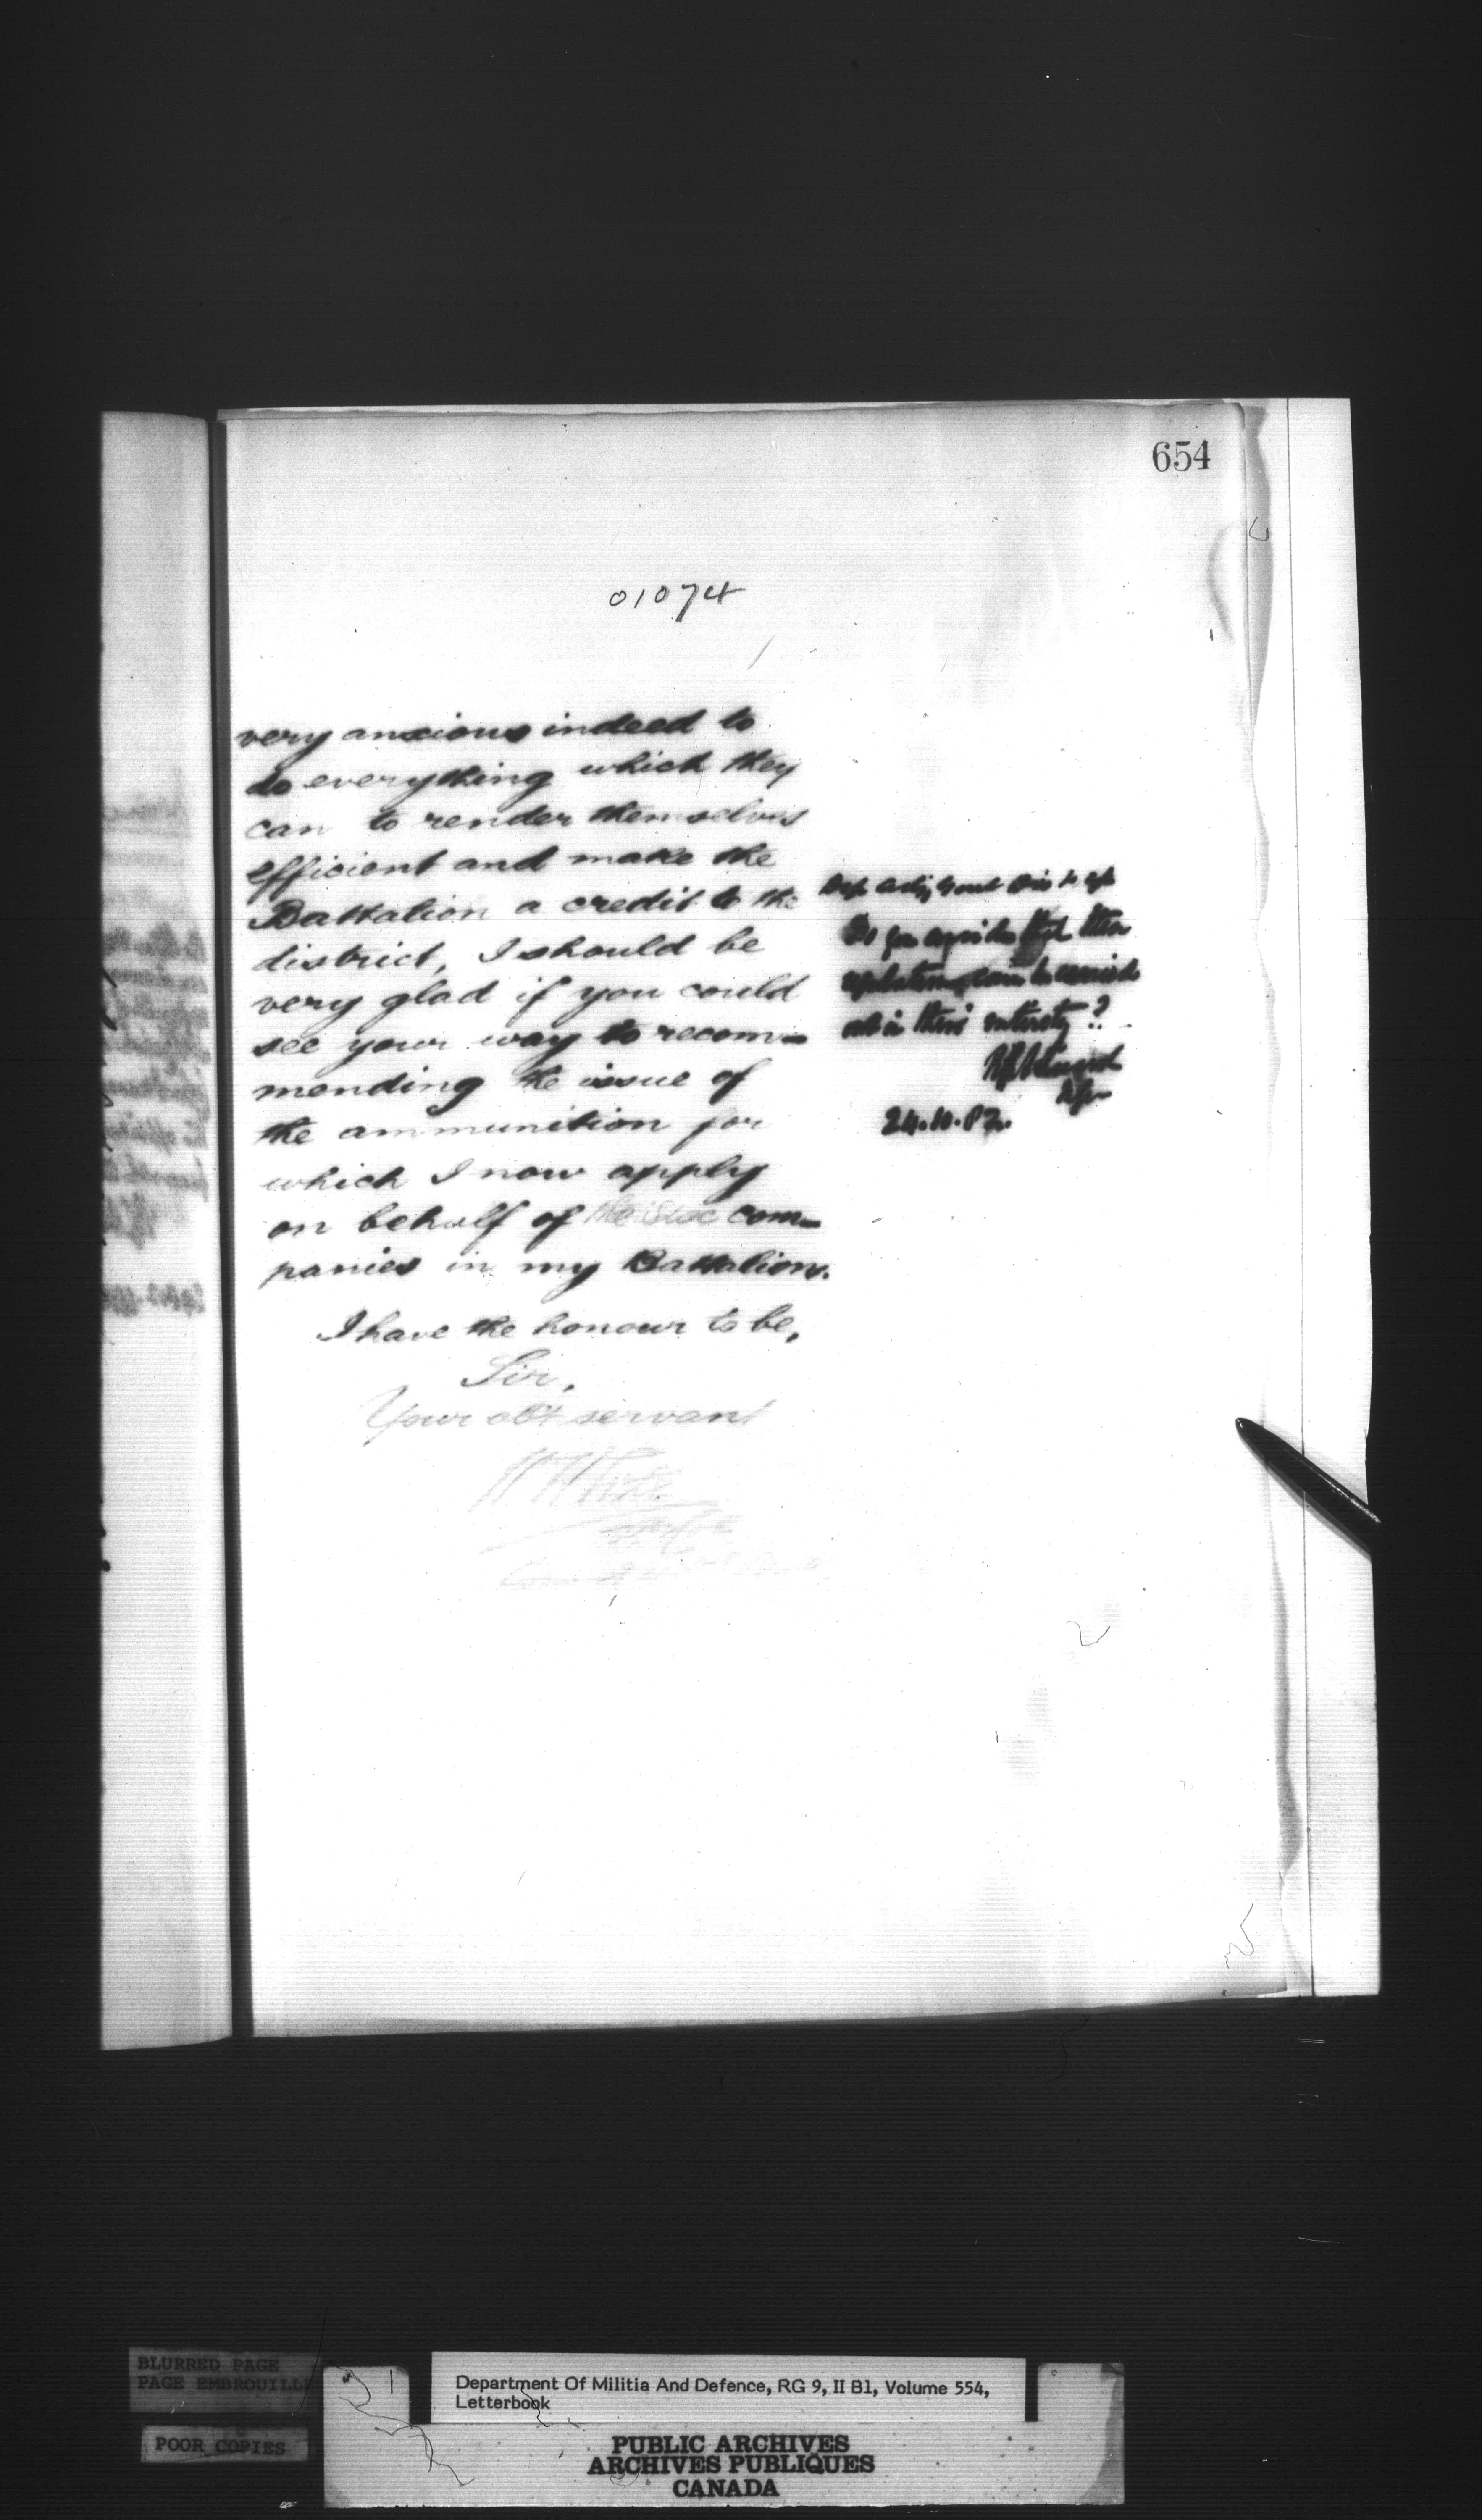 654
01074
very anxious indeed to
do everything which they
can to render themselves
efficient and make the
Battalion a credit to the
district, I should be
very glad if you could
see your way to recom-
mending the issue of
the ammunition for
which I now apply
on behalf of the Six com-
panies in my Battalion.
I have the honour to be,
Sir,
Your obt servant
Do you consider that these
in their entirety?
24.10.82.
BLURRED PAGE
PAGE EMBROUILL
POOR COPIES
Department Of Militia And Defence, RG 9, II B1, Volume 554,
Letterbook
PUBLIC ARCHIVES
ARCHIVES PUBLIQUES
CANADA